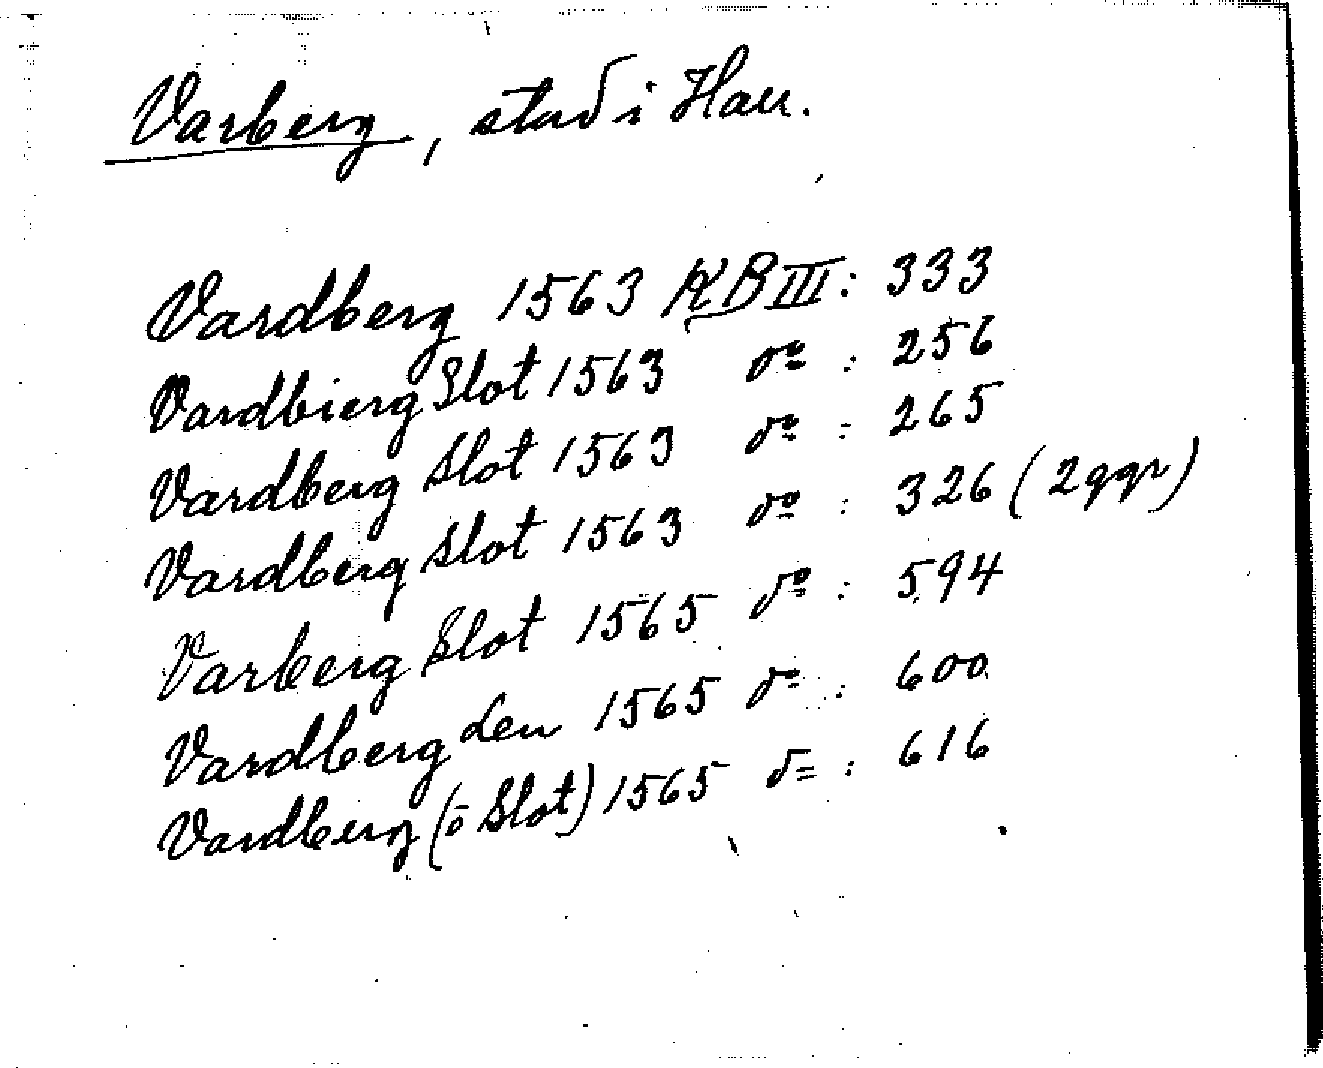 Varberg, stad i Hall.
Vardberg 1563 KB III: 333
Vardbierg Slot 1563 do : 256
Vardberg Slot 1563 do : 265
Vardberg Slot 1563 do : 326 (2ggr)
Varberg Slot 1565 do : 594
Vardberg den 1565 do : 600
Vardberg (ō Slot) 1565 do : 616